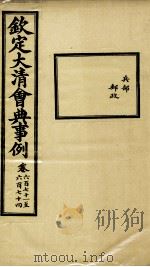 兵部
郵政
欽定大清會典事例
卷
六百七十一至
六百七十四